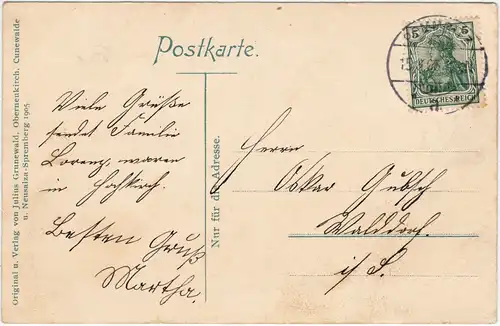 Postkarte.
5 5
DEUTSCHES REICH
Viele Grüße
sendet Familie
Lorenz, waren
in Hochkirch.
Besten Gruß
Martha.
Nur für die Adresse.
Herrn
Oskar Gubsch
Walddorf.
i/S.
Original u. Verlag von Julius Grunewald, Obernenkirch, Cunewalde
u. Neusalza-Spremberg 1905